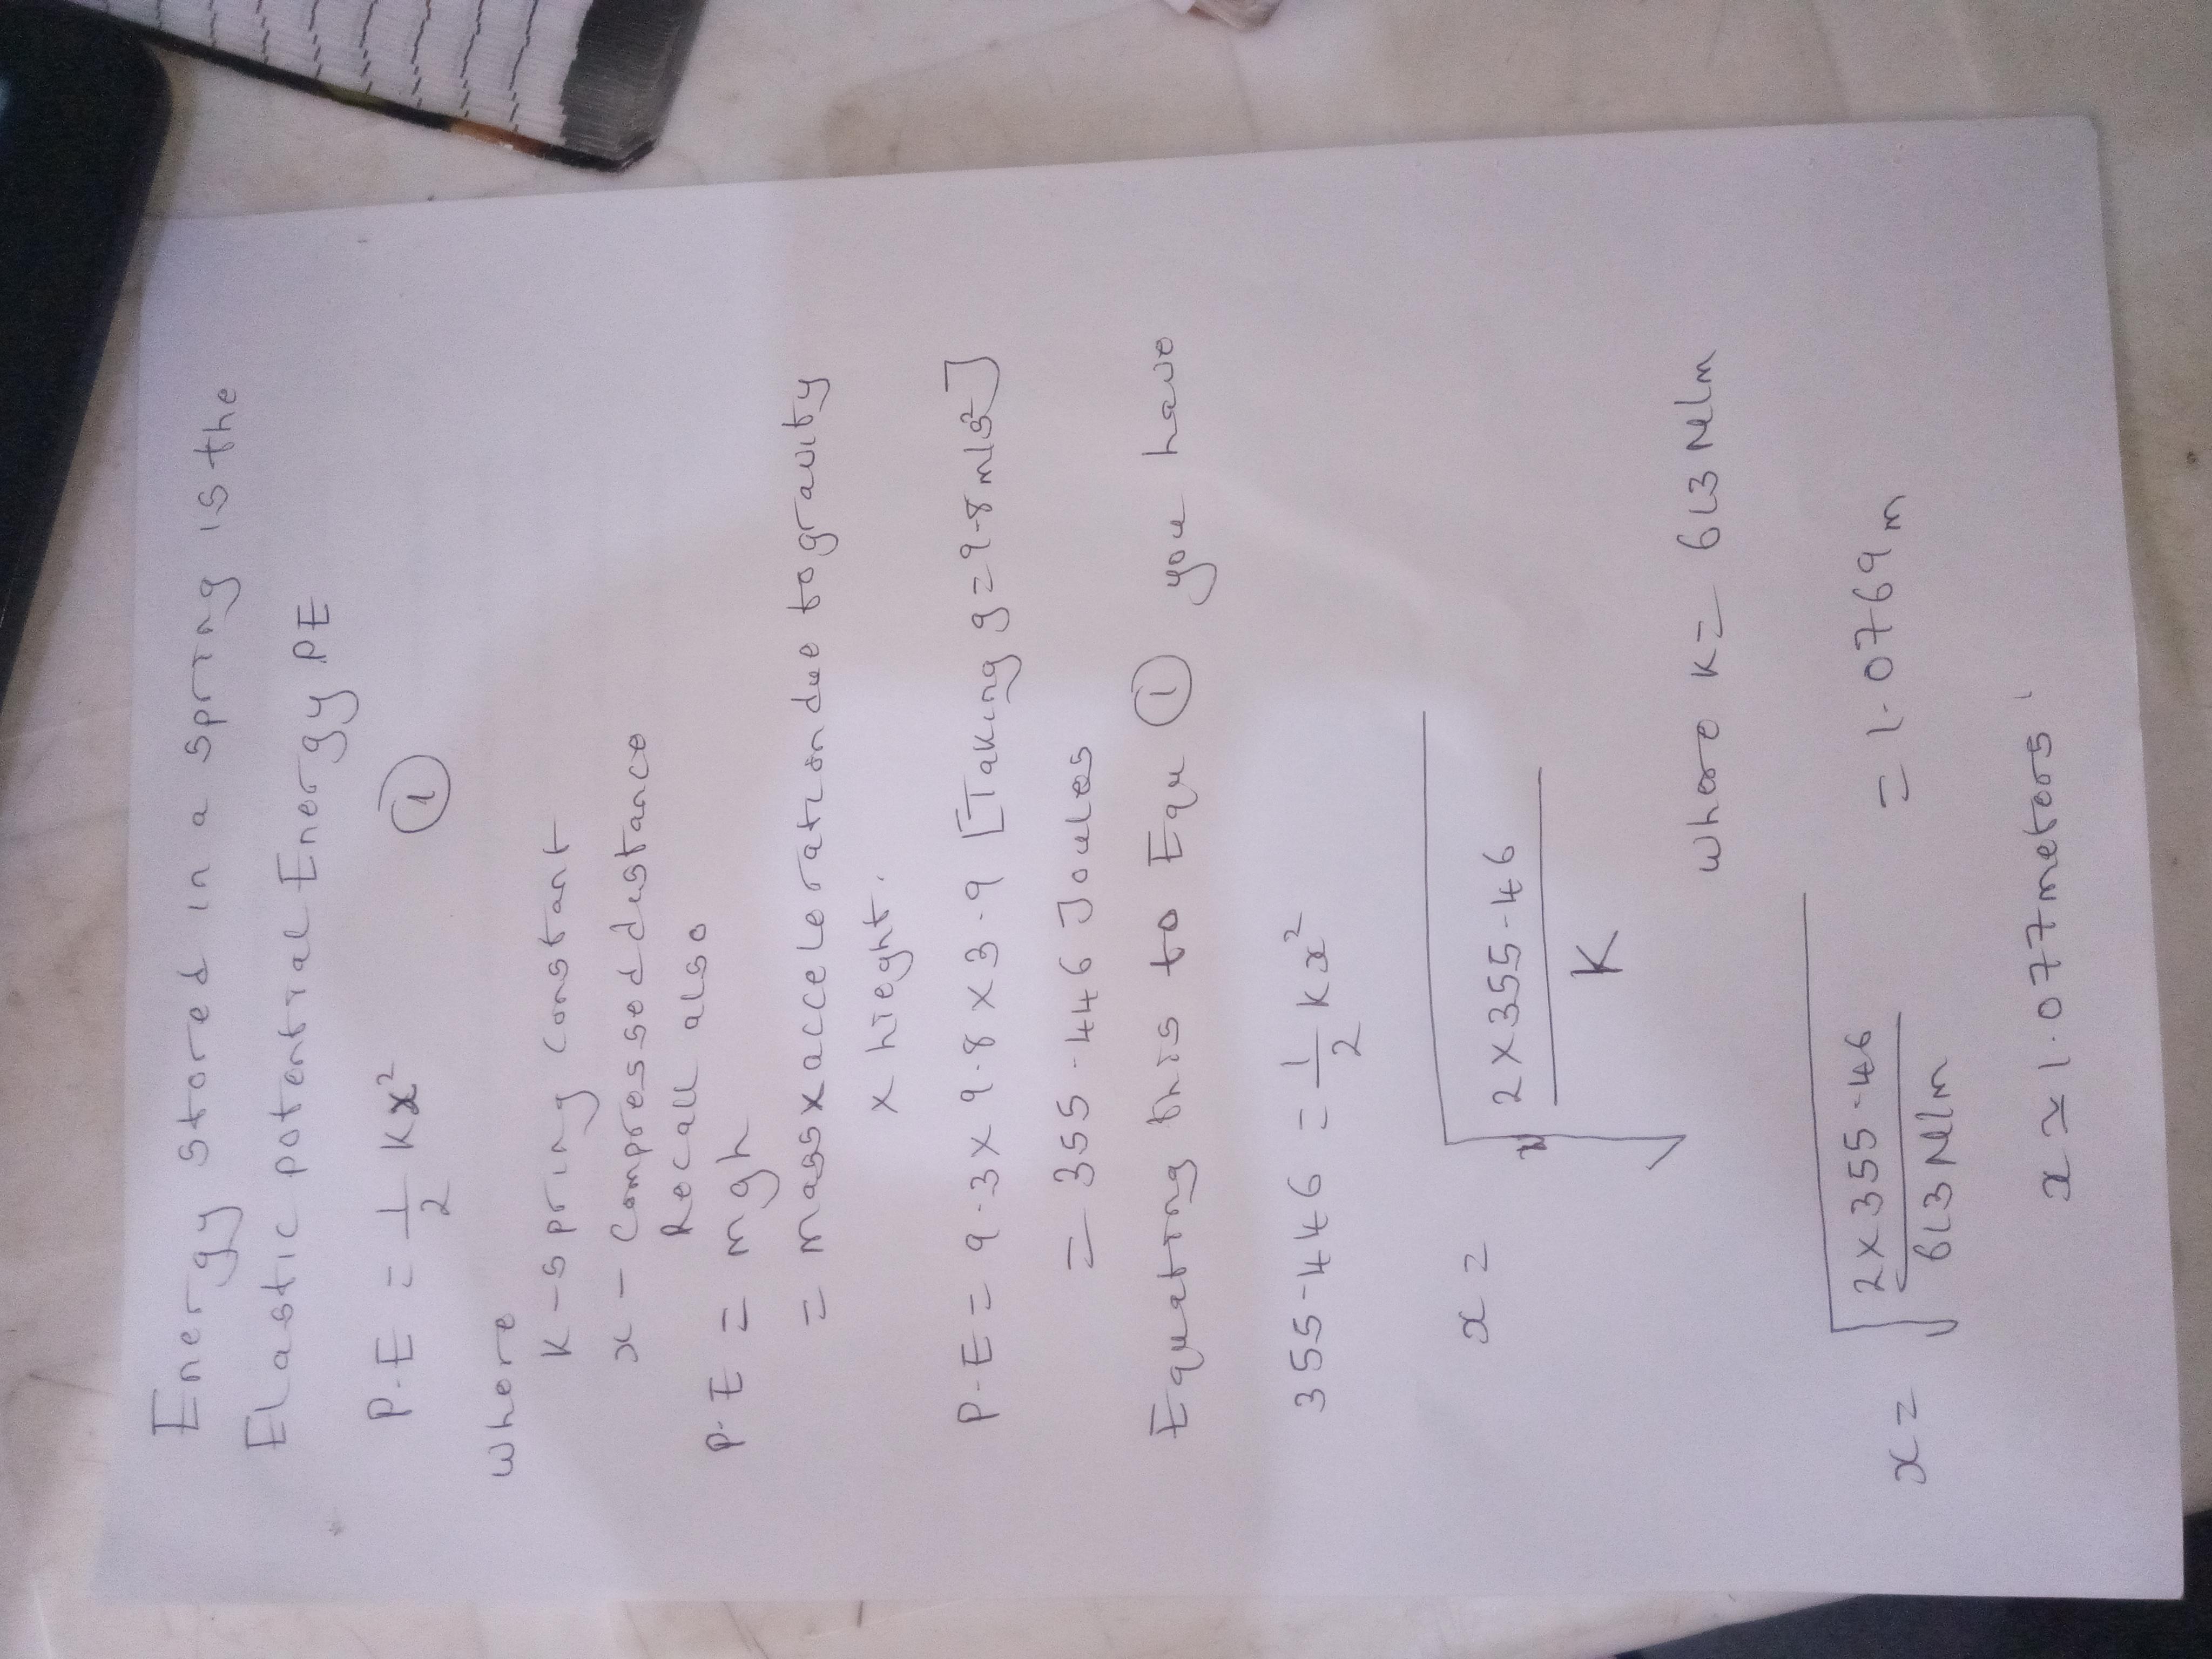 Energy stored in a spring is the
Elastic potential Energy PE
P.E = 1/2 Kx² ①
where
K - spring constant
x - compressed distance
Recall also
P.E = mgh
= mass x acceleration due to gravity
x hieght.
P.E = 9.3 x 9.8 x 3.9 [Taking g = 9.8 m/s²]
= 355.446 Joules
Equating this to Equ ① you have
355.446 = 1/2 Kx²
x = √(2 x 355.46 / K)
where K = 613 N/m
x = √(2 x 355.46 / 613 N/m) = 1.0769 m
x ≃ 1.077 meters